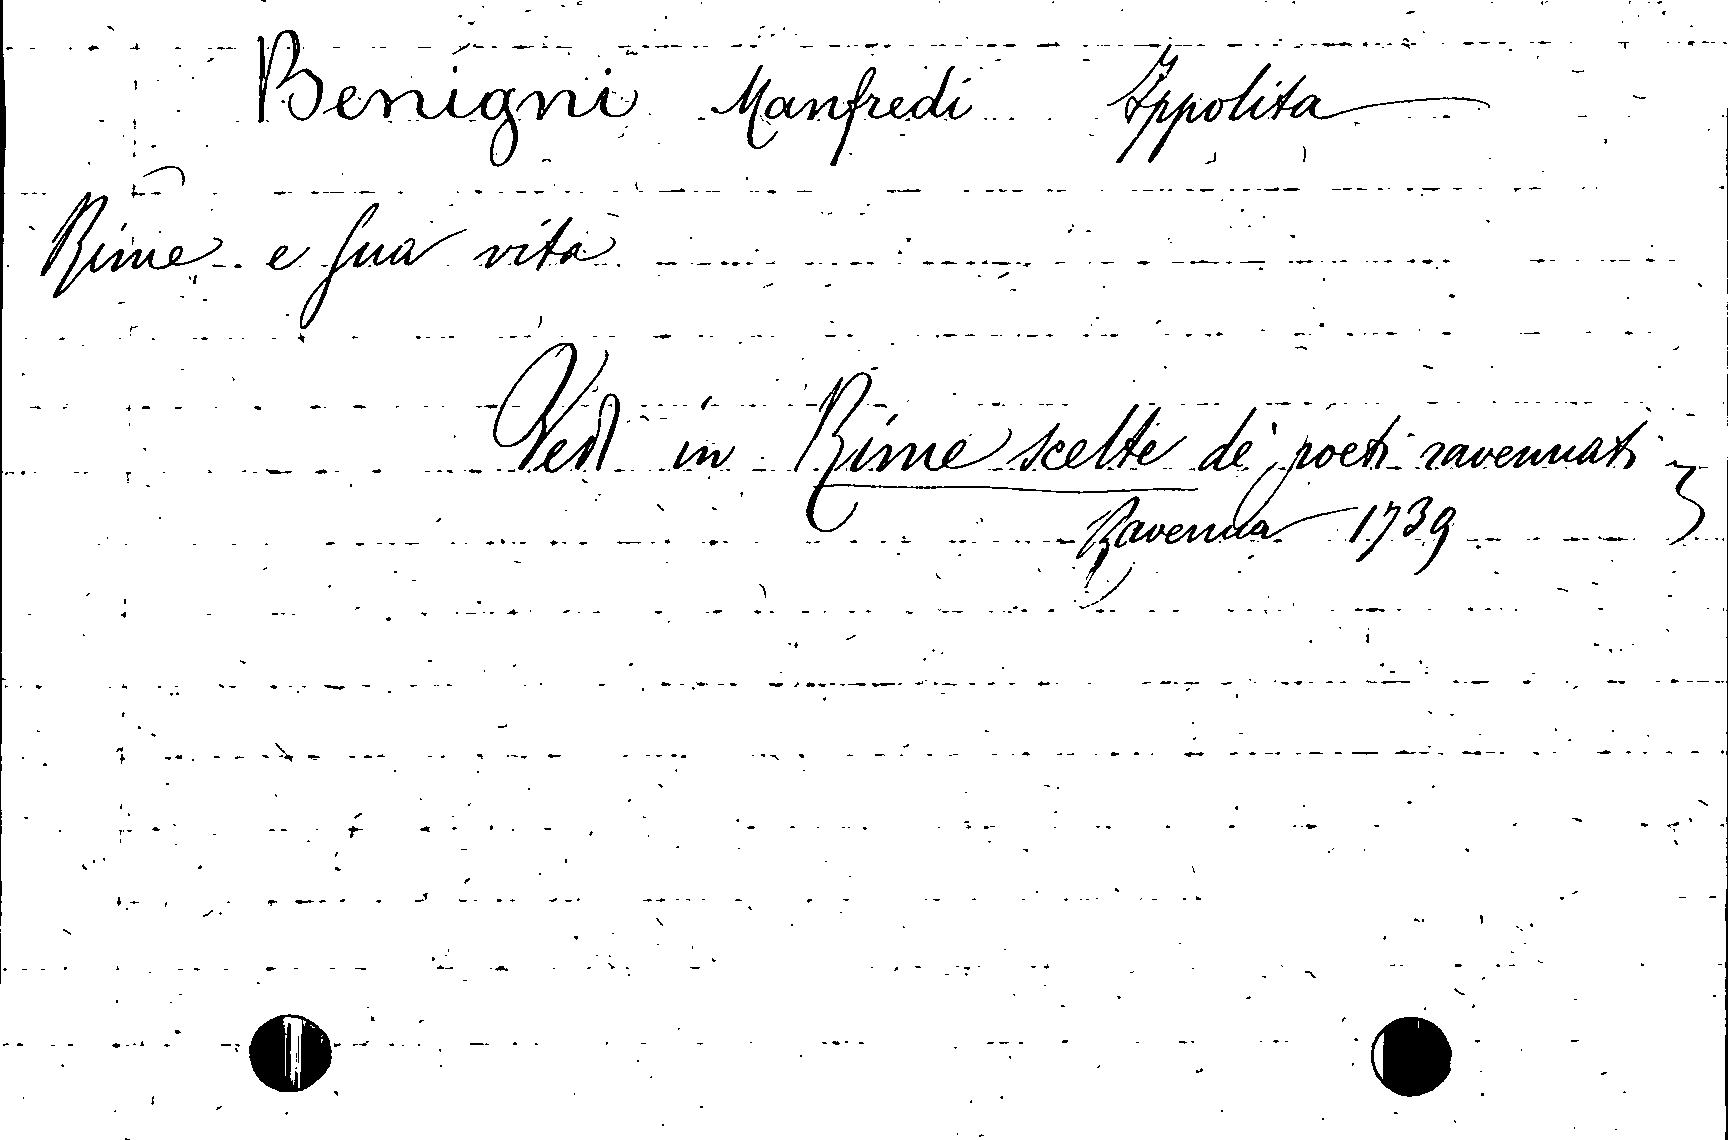 Benigni Manfredi Ippolita
Rime e sua vita
Vedi in Rime scelte de' poeti ravennati
Ravenna 1739